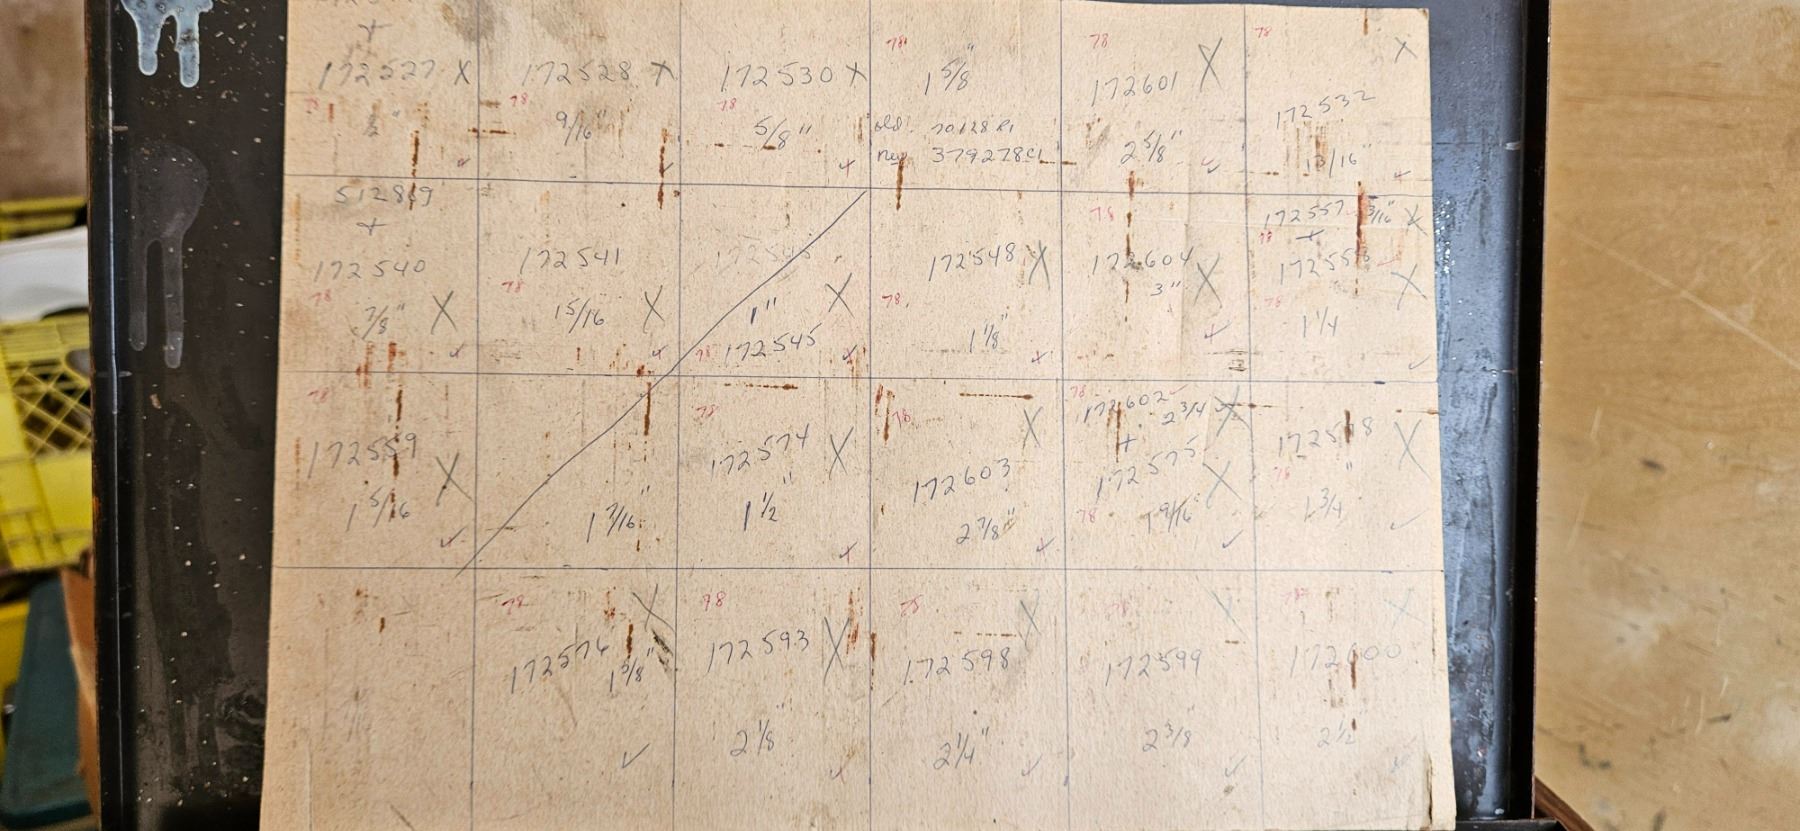 172527 X
78
172528 X
78
9/16"
172530 X
78
5/8"
78
1 5/8"
old 70128 R1
new 379278 C1
78
172601 X
2 5/8"
78
X
172532
13/16"
512869
+
172540
78
7/8" X
172541
78
15/16 X
1" X
78 172545
172548 X
78
1 1/8"
78
172604
3" X
172557 3/16" X
78 +
172558
78 X
1 1/4
78
172559
X
1 5/16
1 7/16"
78
172574 X
1 1/2"
78 X
172603
2 7/8"
78
172602
2 3/4 X
+
172575 X
78 1 9/16"
172578 X
78
1 3/4"
78 X
172576
1 5/8"
78
172593 X
2 1/8"
78 X
172598
2 1/4"
78 X
172599
2 3/8"
78 X
172600
2 1/2